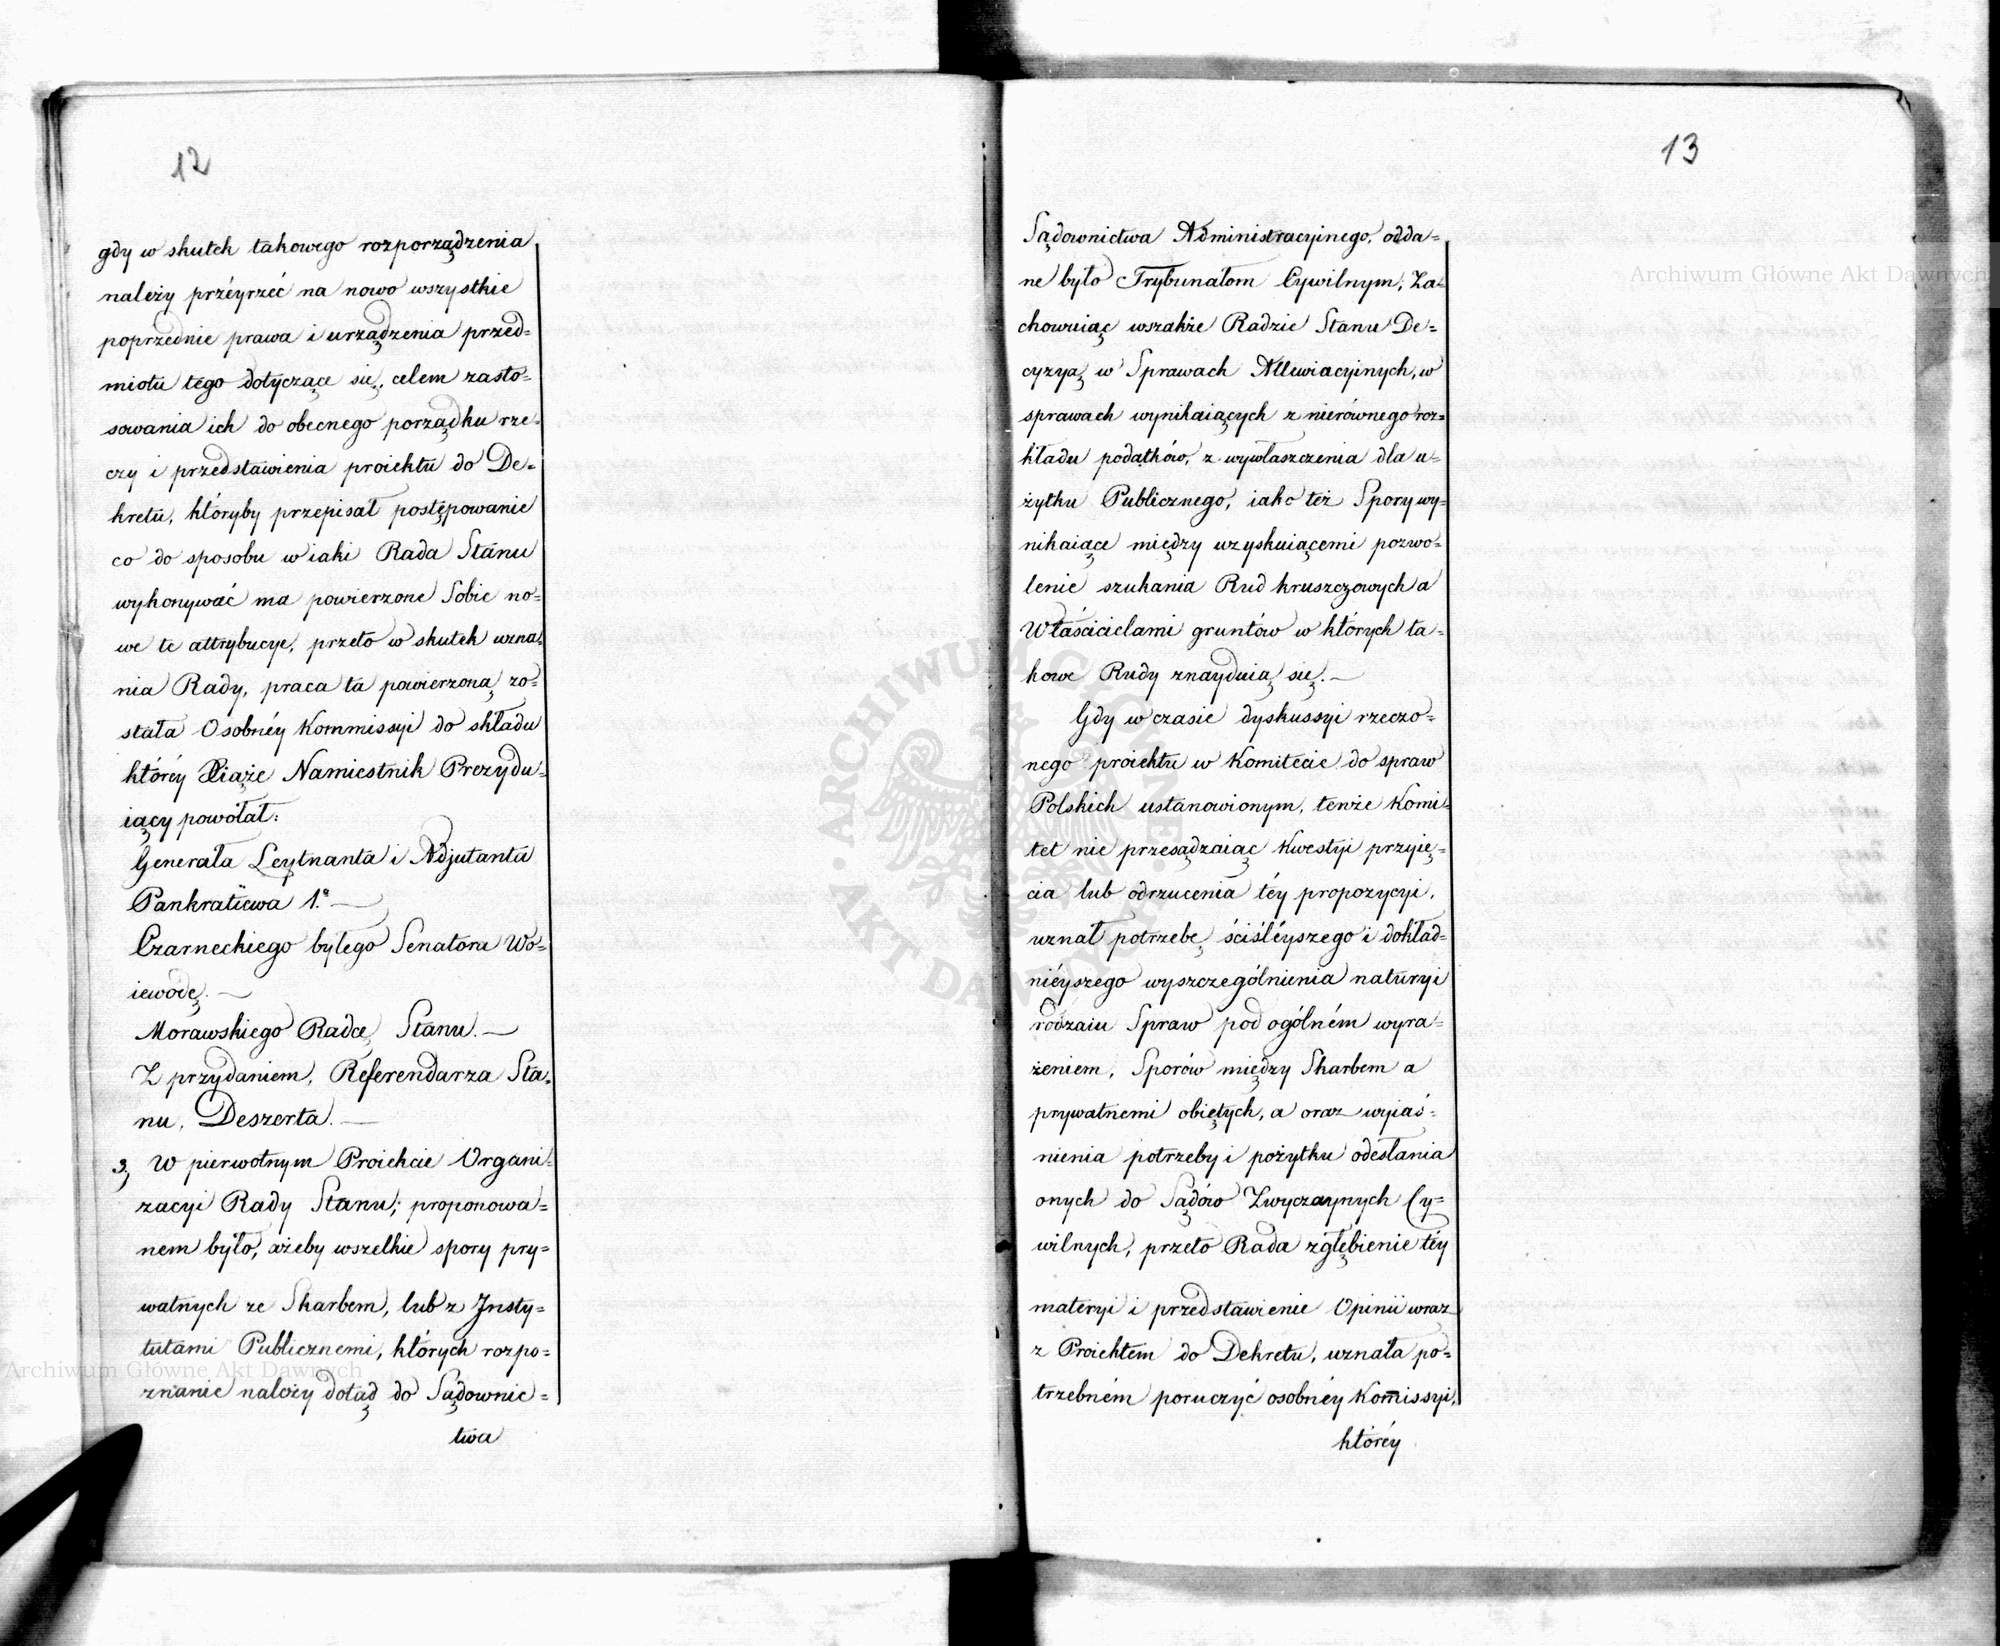 12
gdy w skutek takowego rozporządzenia
należy przéyrzéć na nowo wszystkie
poprzednie prawa i urządzenia przed=
miotu tego dotyczące się, celem zasto=
sowania ich do obecnego porządku rze=
czy i przedstawienia proiektu do De=
kretu, któryby przepisał postępowanie
co do sposobu w iaki Rada Stanu
wykonywać ma powierzone Sobie no=
we te attrybucye, przeto w skutek uzna=
nia Rady, praca ta powierzoną zo=
stała Osobnéy Kommissyi do składu
któréy Xiąże Namiestnik Prezydu=
iący powołał:
Generała Leytnanta i Adjutanta
Pankratiewa 1.º —
Czarneckiego byłego Senatora Wo=
iewodę. —
Morawskiego Radcę Stanu. —
Z przydaniem, Referendarza Sta=
nu, Deszerta. —
3, W pierwotnym Proiekcie Organi=
zacyi Rady Stanu; proponowa=
nem było, ażeby wszelkie spory pry=
watnych ze Skarbem, lub z Insty=
tutami Publicznemi, których rozpo=
znanie należy dotąd do Sądownic=
twa
13
Sądownictwa Administracyjnego, odda=
ne było Trybunałom Cywilnym, Za=
chowuiąc wszakże Radzie Stanu De=
cyzyą w Sprawach Allewiacyjnych, w
sprawach wynikaiących z nierównego roz=
kładu podatków, z wywłaszczenia dla u=
żytku Publicznego, iako też Spory wy=
nikaiące między uzyskuiącemi pozwo=
lenie szukania Rud kruszczowych a
Właścicielami gruntów w których ta=
kowe Rudy znayduią się. —
Gdy w czasie dyskussyi rzeczo=
nego proiektu w Komitecie do spraw
Polskich ustanowionym, tenże Komi=
tet nie przesądzaiąc Kwestyi przyię=
cia lub odrzucenia téy propozycyi,
uznał potrzebę ściśléyszego i dokład=
niéyszego wyszczególnienia natury i
rodzaiu Spraw pod ogólném wyra=
żeniem, Sporów między Skarbem a
prywatnemi obiętych, a oraz wyiaś=
nienia potrzeby i pożytku odesłania
onych do Sądów Zwyczaynych Cy=
wilnych, przeto Rada zgłębienie téy
materyi i przedstawienie Opinii wraz
z Proiektem do Dekretu, uznała po=
trzebném poruczyć osobnéy Kom̄issyi,
któréy
Archiwum Główne Akt Dawnych
Archiwum Główne Akt Dawnych
ARCHIWUM GŁÓWNE
AKT DAWNYCH